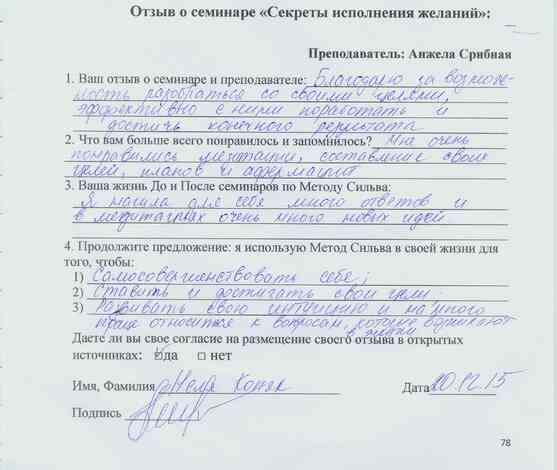 Отзыв о семинаре «Секреты исполнения желаний»:
Преподаватель: Анжела Срибная
1. Ваш отзыв о семинаре и преподавателе: Благодарю за возмож-
ность разобраться со своими целями,
эффективно с ними поработать и
достичь конечного результата
2. Что вам больше всего понравилось и запомнилось? Мне очень
понравились медитации, составление своих
целей, планов и аффермаций
3. Ваша жизнь До и После семинаров по Методу Сильва:
Я нашла для себя много ответов и
в медитациях очень много новых идей
4. Продолжите предложение: я использую Метод Сильва в своей жизни для
того, чтобы:
1) Самосовершенствовать себе;
2) Ставить и достигать свои цели.
3) Развивать свою интуицию и намного
проще относиться к вопросам, которые возникают
в жизни
Даете ли вы свое согласие на размещение своего отзыва в открытых
источниках: да нет
Имя, Фамилия Неля
Дата 20.12.15
Подпись
78